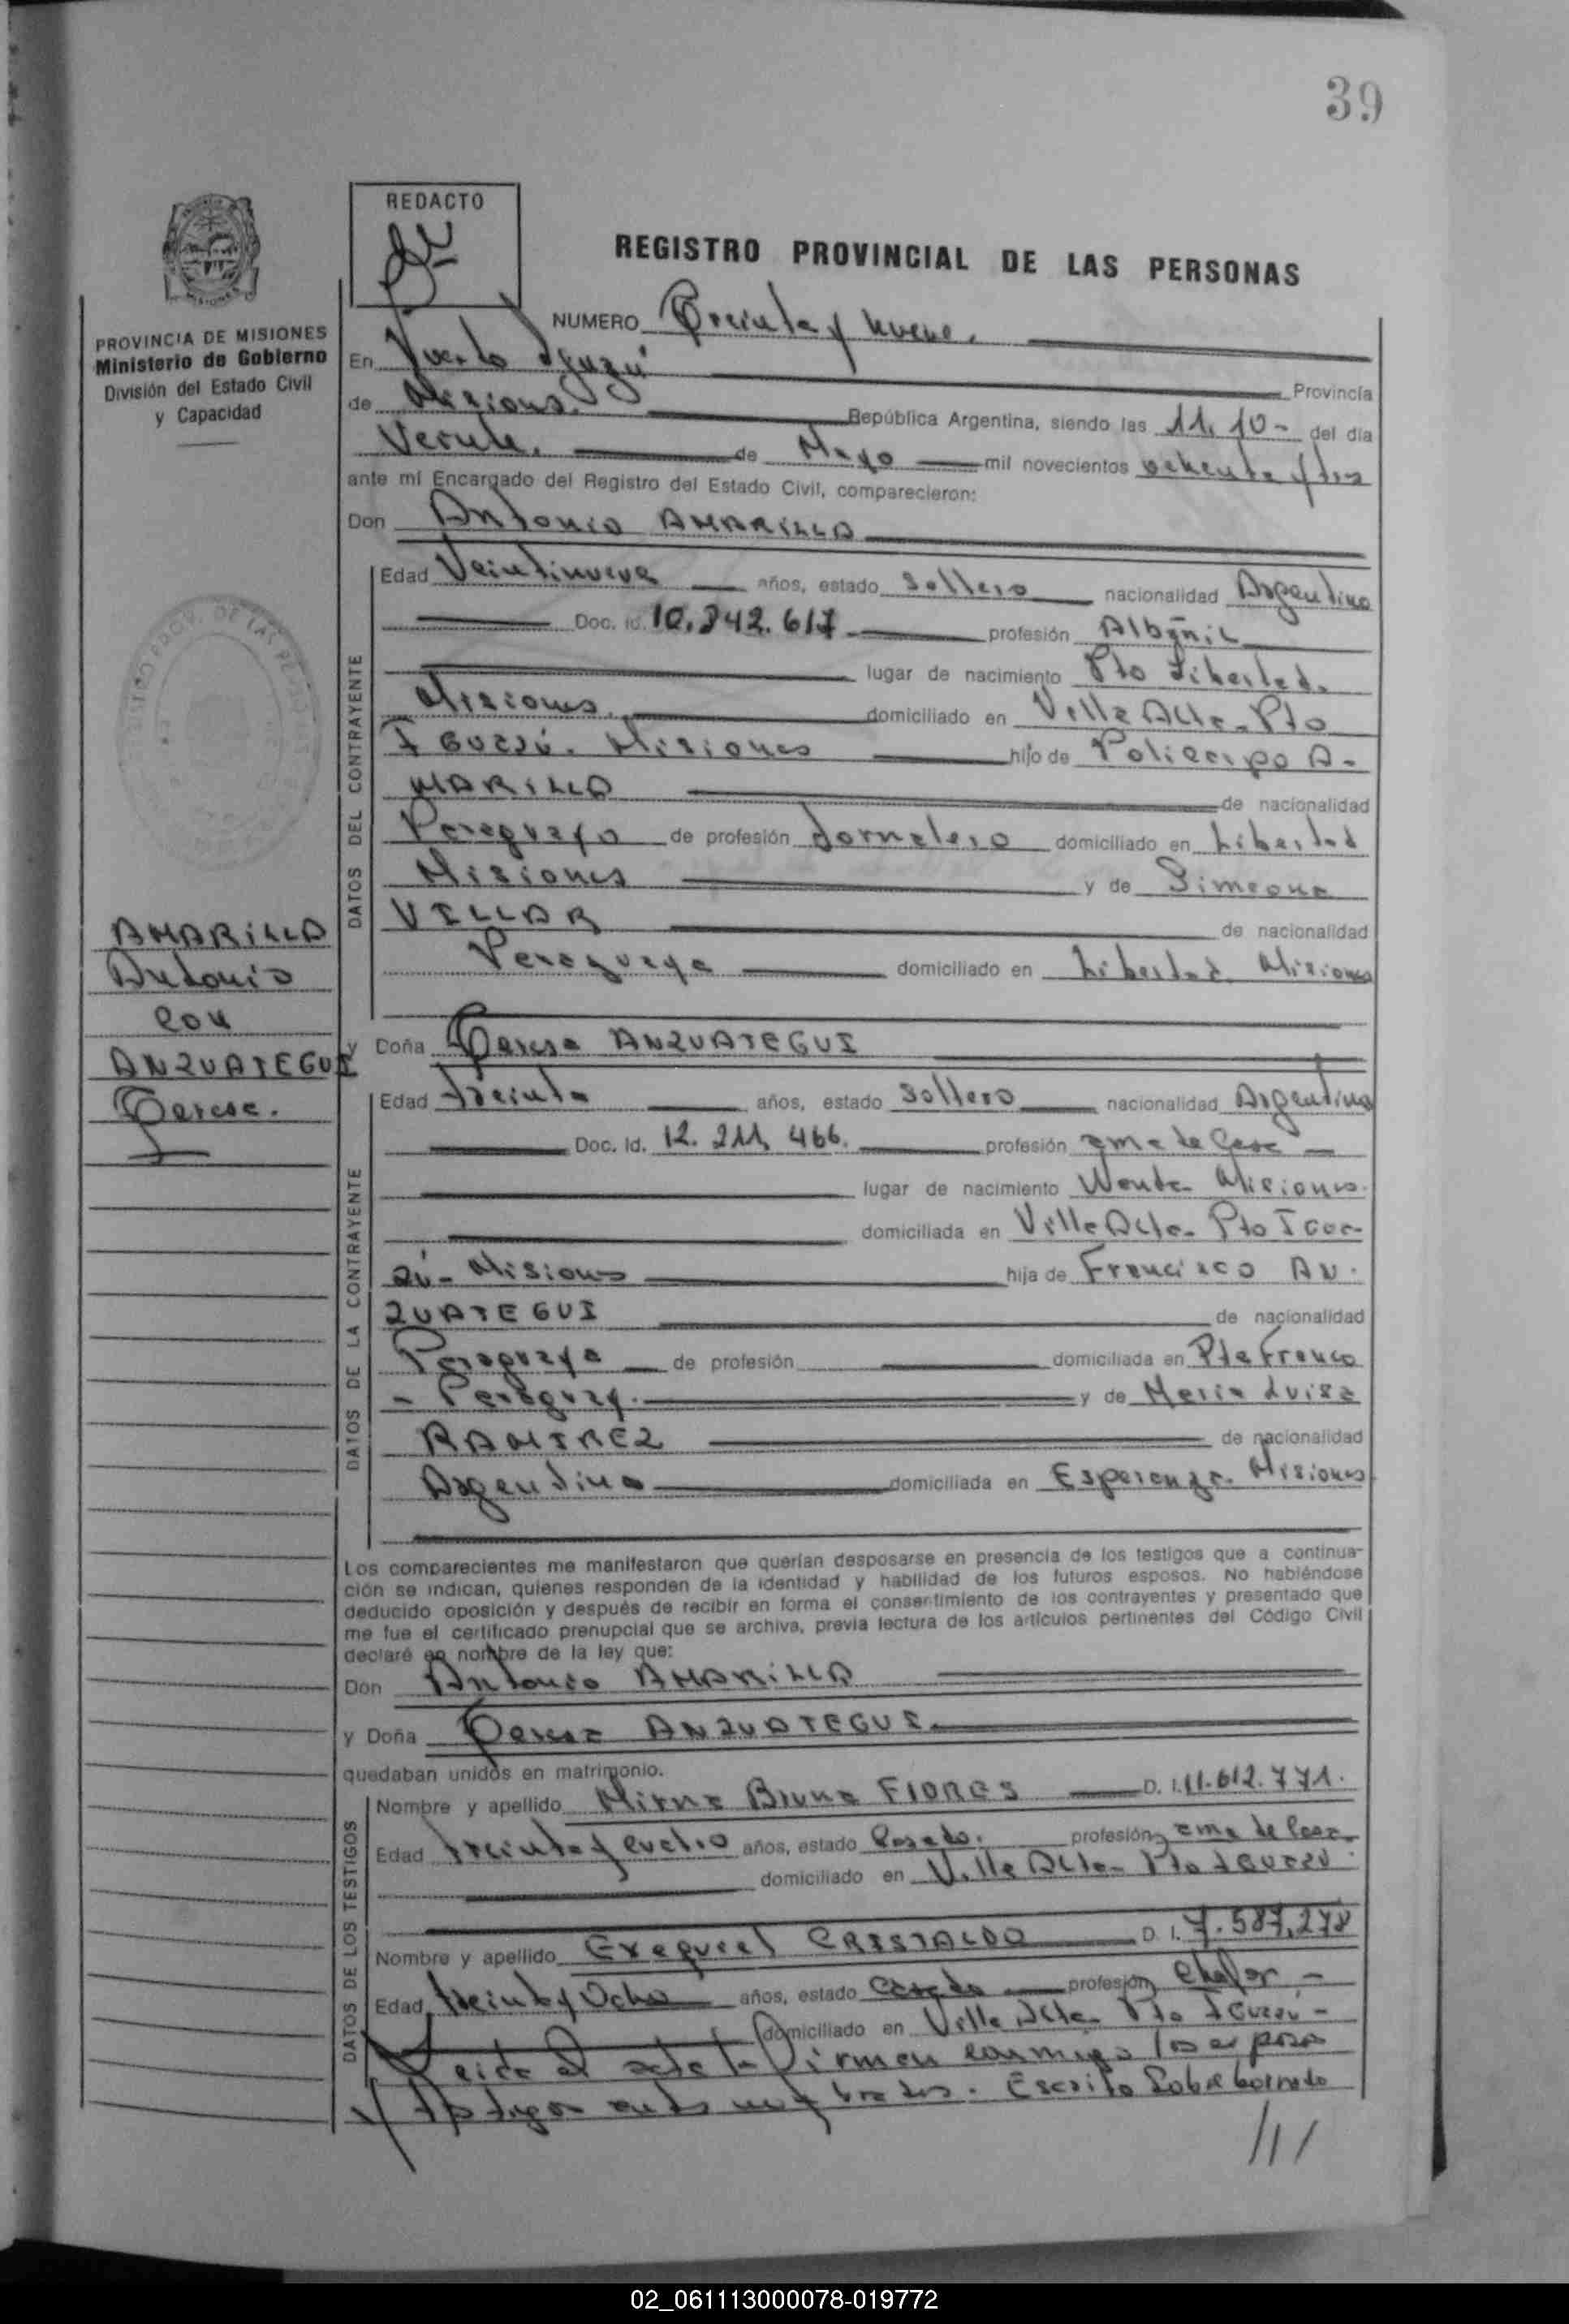 39
REDACTO
REGISTRO PROVINCIAL DE LAS PERSONAS
PROVINCIA DE MISIONES
Ministerio de Gobierno
División del Estado Civil
y Capacidad
NUMERO Treinta y nueve.
En Puerto Iguazú Provincia
de Misiones. República Argentina, siendo las 11,10- del día
Veinte. de Mayo mil novecientos ochenta y tres
ante mí Encargado del Registro del Estado Civil, comparecieron:
Don Antonio AMARILLA
DATOS DEL CONTRAYENTE
Edad Veintinueve años, estado soltero nacionalidad Argentino
Doc. id. 10.842.617 profesión Albañil
lugar de nacimiento Pto Libertad.
Misiones. domiciliado en Villa Alta- Pto
Iguazú. Misiones hijo de Policarpo A-
MARILLA de nacionalidad
Paraguayo de profesión Jornalero domiciliado en Libertad
Misiones y de Simeona
VILLAR de nacionalidad
Paraguaya domiciliado en Libertad Misiones
AMARILLA
Antonio
con
ANZUATEGUI
Teresa.
y Doña Teresa ANZUATEGUI
DATOS DE LA CONTRAYENTE
Edad treinta años, estado soltero nacionalidad Argentina
Doc. Id. 12.211,466. profesión ama de Casa -
lugar de nacimiento Wanda Misiones.
domiciliada en Villa Alta- Pto Igua-
zú- Misiones hija de Francisco AN-
ZUATEGUI de nacionalidad
Paraguaya de profesión domiciliada en Pte Franco
- Paraguay. y de Maria Luisa
RAMIREZ de nacionalidad
Argentina domiciliada en Esperanza. Misiones
Los comparecientes me manifestaron que querían desposarse en presencia de los testigos que a continua-
ción se indican, quienes responden de la identidad y habilidad de los futuros esposos. No habiéndose
deducido oposición y después de recibir en forma el consentimiento de los contrayentes y presentado que
me fue el certificado prenupcial que se archiva, previa lectura de los artículos pertinentes del Código Civil
declaré en nombre de la ley que:
Don Antonio AMARILLA
y Doña Teresa ANZUATEGUI.
quedaban unidos en matrimonio.
DATOS DE LOS TESTIGOS
Nombre y apellido Mirna Bruna FLORES D. I. 11.612.771.
Edad treinta y cuatro años, estado Casado. profesión ama de Casa-
domiciliado en Villa Alta- Pto Iguazú.
Nombre y apellido Exequiel CRISTALDO D. I. 7.587,278
Edad treinta y Ocho años, estado Casado profesión Chofer -
domiciliado en Villa Alta. Pto Iguazú-
Leida el acta la firman conmigo los esposos
y testigos antes nombrados. Escrito Sobre borrado
///
02_061113000078-019772